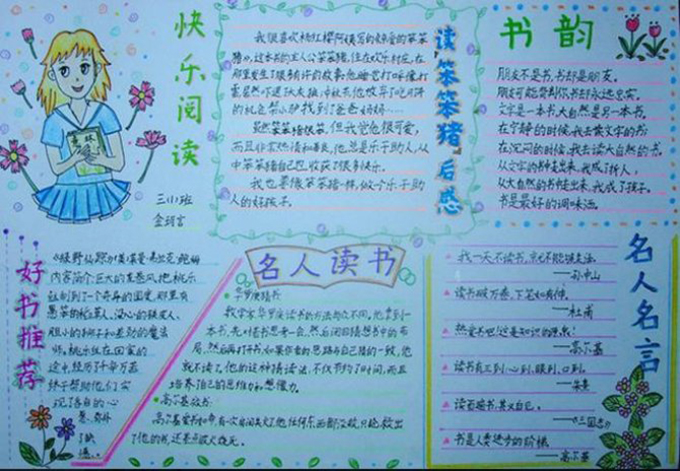 快乐阅读
三(1)班
读《笨笨猪》后感
我很喜欢杨红樱阿姨写的《亲爱的笨笨
猪》,这本书的主人公笨笨猪,住在欢乐村庄,在
个机会帮小驴找到了爸爸妈妈……
虽然笨笨猪很笨,但我觉他很可爱,
而且非常热情和善良,他总是乐于助人,从
中笨笨猪自己也收获了很多快乐。
我也要像笨笨猪一样,做个乐于助
人的好孩子。
书韵
朋友不是书,书却是朋友。
朋友可能背叛你,书却永远忠实。
文字是一本书,大自然是另一本书。
在宁静的时候,我去读文字的书
在沉闷的时候,我去读大自然的书。
从文字的书中走出来,我成了诗人,
从大自然的书中走出来,我成了孩子。
书是最好的调味酒。
好书推荐
内容简介:巨大的龙卷风把桃乐
丝刮到了一个奇异的国度,那里有
胆小的狮子和差劲的魔法
师。桃乐丝在回家的
途中,经历了千辛万苦
终于帮助他们实
现了各自的心
愿
名人读书
华罗庚猜书:
我学家华罗庚读书的方法与众不同。他拿到一
本书,先对着书思考一会,然后闭目猜想书中的布
局,然后再打开书,如果作者的思路与自己猜的一致,他
就不读了,他的这种猜读法,不仅节约了时间,而且
培养自己的思维力和想像力。
高尔基救书:
高尔基爱书如命,有一次房间失火了,他任何东西都没救,只抢救出
了他的书,还差点被火烧死。
名人名言
我一天不读书,就不能够生活。
——孙中山
读书破万卷,下笔如有神。
——杜甫
热爱书吧!这是知识的泉源!
——高尔基
读书有三到:心到、眼到、口到。
——朱熹
读书百遍,其义自已。
——《三国志》
书是人类进步的阶梯。
——高尔基